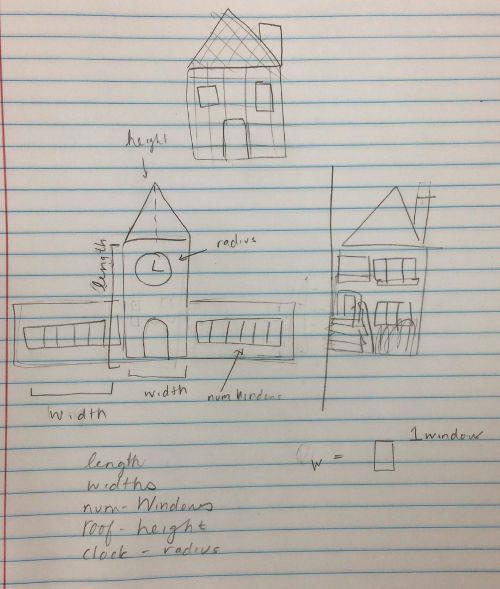 height
radius
length
width
width
num Windows
1 window
W =
length
widths
num-Windows
roof-height
clock-radius